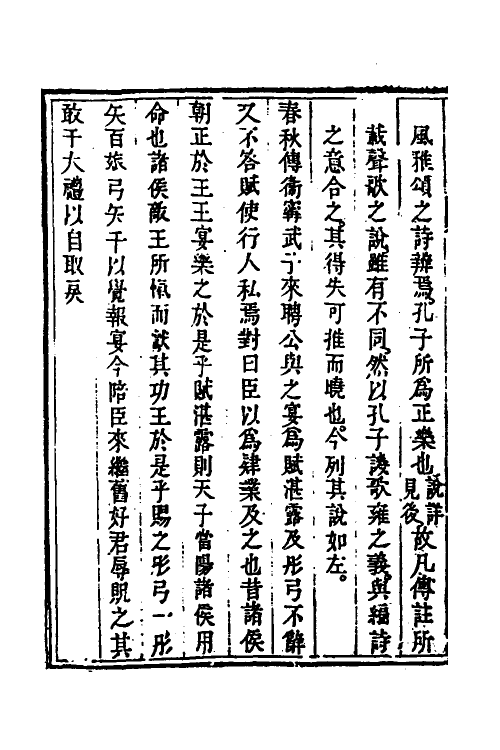 風雅頌之詩辯焉孔子所爲正樂也說詳見後故凡傳註所
載聲歌之說雖有不同然以孔子譏歌雍之義與編詩
之意合之其得失可推而曉也今列其說如左。
春秋傳衞甯武子來聘公與之宴爲賦湛露及彤弓不辭
又不答賦使行人私焉對曰臣以爲肄業及之也昔諸侯
朝正於王王宴樂之於是乎賦湛露則天子當陽諸侯用
命也諸侯敵王所愾而獻其功王於是乎賜之彤弓一彤
矢百玈弓矢千以覺報宴今陪臣來繼舊好君辱貺之其
敢干大禮以自取戾